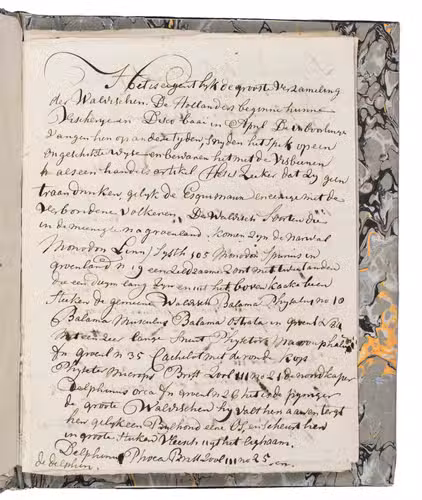 Het is eigentlyk de groote Verzameling
der Walvischen. De Hollanders beginne hunne
Visscherye in Disco baai in April De inboorlinge
Vangen hen op andere tyden, snyden het Spek op een
ongeschikte wyze en bewaren het met de Visbeenen
als een handels artikel. Het is Zeker dat Zy geen
traan drinken, gelyk de Esquimaux en eenige met de
verbondene Volkeren. De Walvisch Soorten die
in de menigte in groenland komen zyn de Narwal
Monodon Linn, Syst. 105 Monodon Spurius in
groenland n 19 een zeldzaame Zoort met twee tanden
die een duym lang Zyn en uit het boven kaake been
Steken de gemeene Walvisch Balama Physalus no 10
Balama Musculus Balama rostrata in groenl
met een zeer lange Snuit Physeter
In Groenl n 35 Cachelot met de ronde kop
Physeter Microps Britt Zool III no 21 de nordkaper
Delphinus orca In groenl n 26 het is de
de groote Walvisschen hy valt hen aan en tergt
hen gelyk een Bulhond eene Os, en scheurt hen
in groote Stukken Vleesch uyt het lighaam.
Delphinus Phocæna Britt Zool III no 25, en
de delphin.